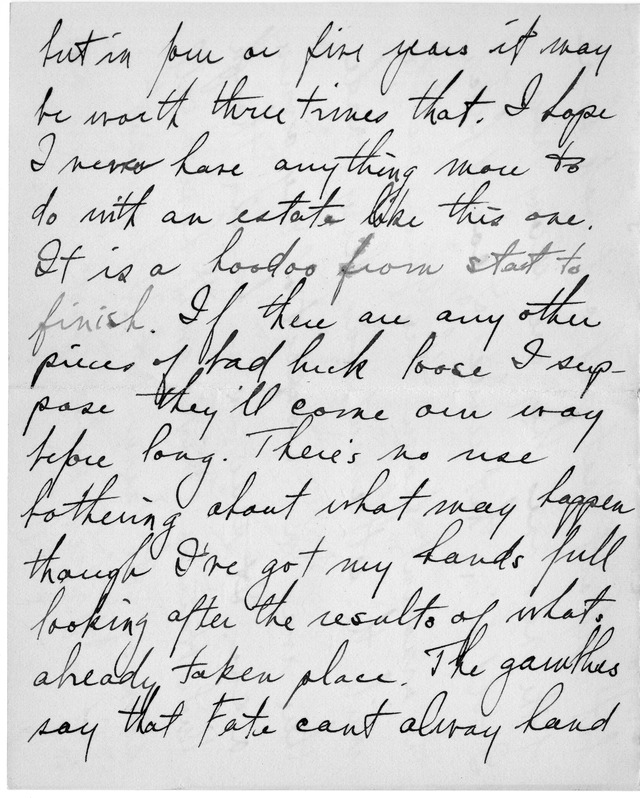 but in four or five years it may
be worth three times that. I hope
I never have anything more to
do with an estate like this one.
It is a hoodoo from start to
finish. If there are any other
pieces of bad luck loose I sup-
pose they'll come our way
before long. There's no use
bothering about what may happen
though I've got my hands full
looking after the results of what's
already taken place. The
say that Fate cant alway hand